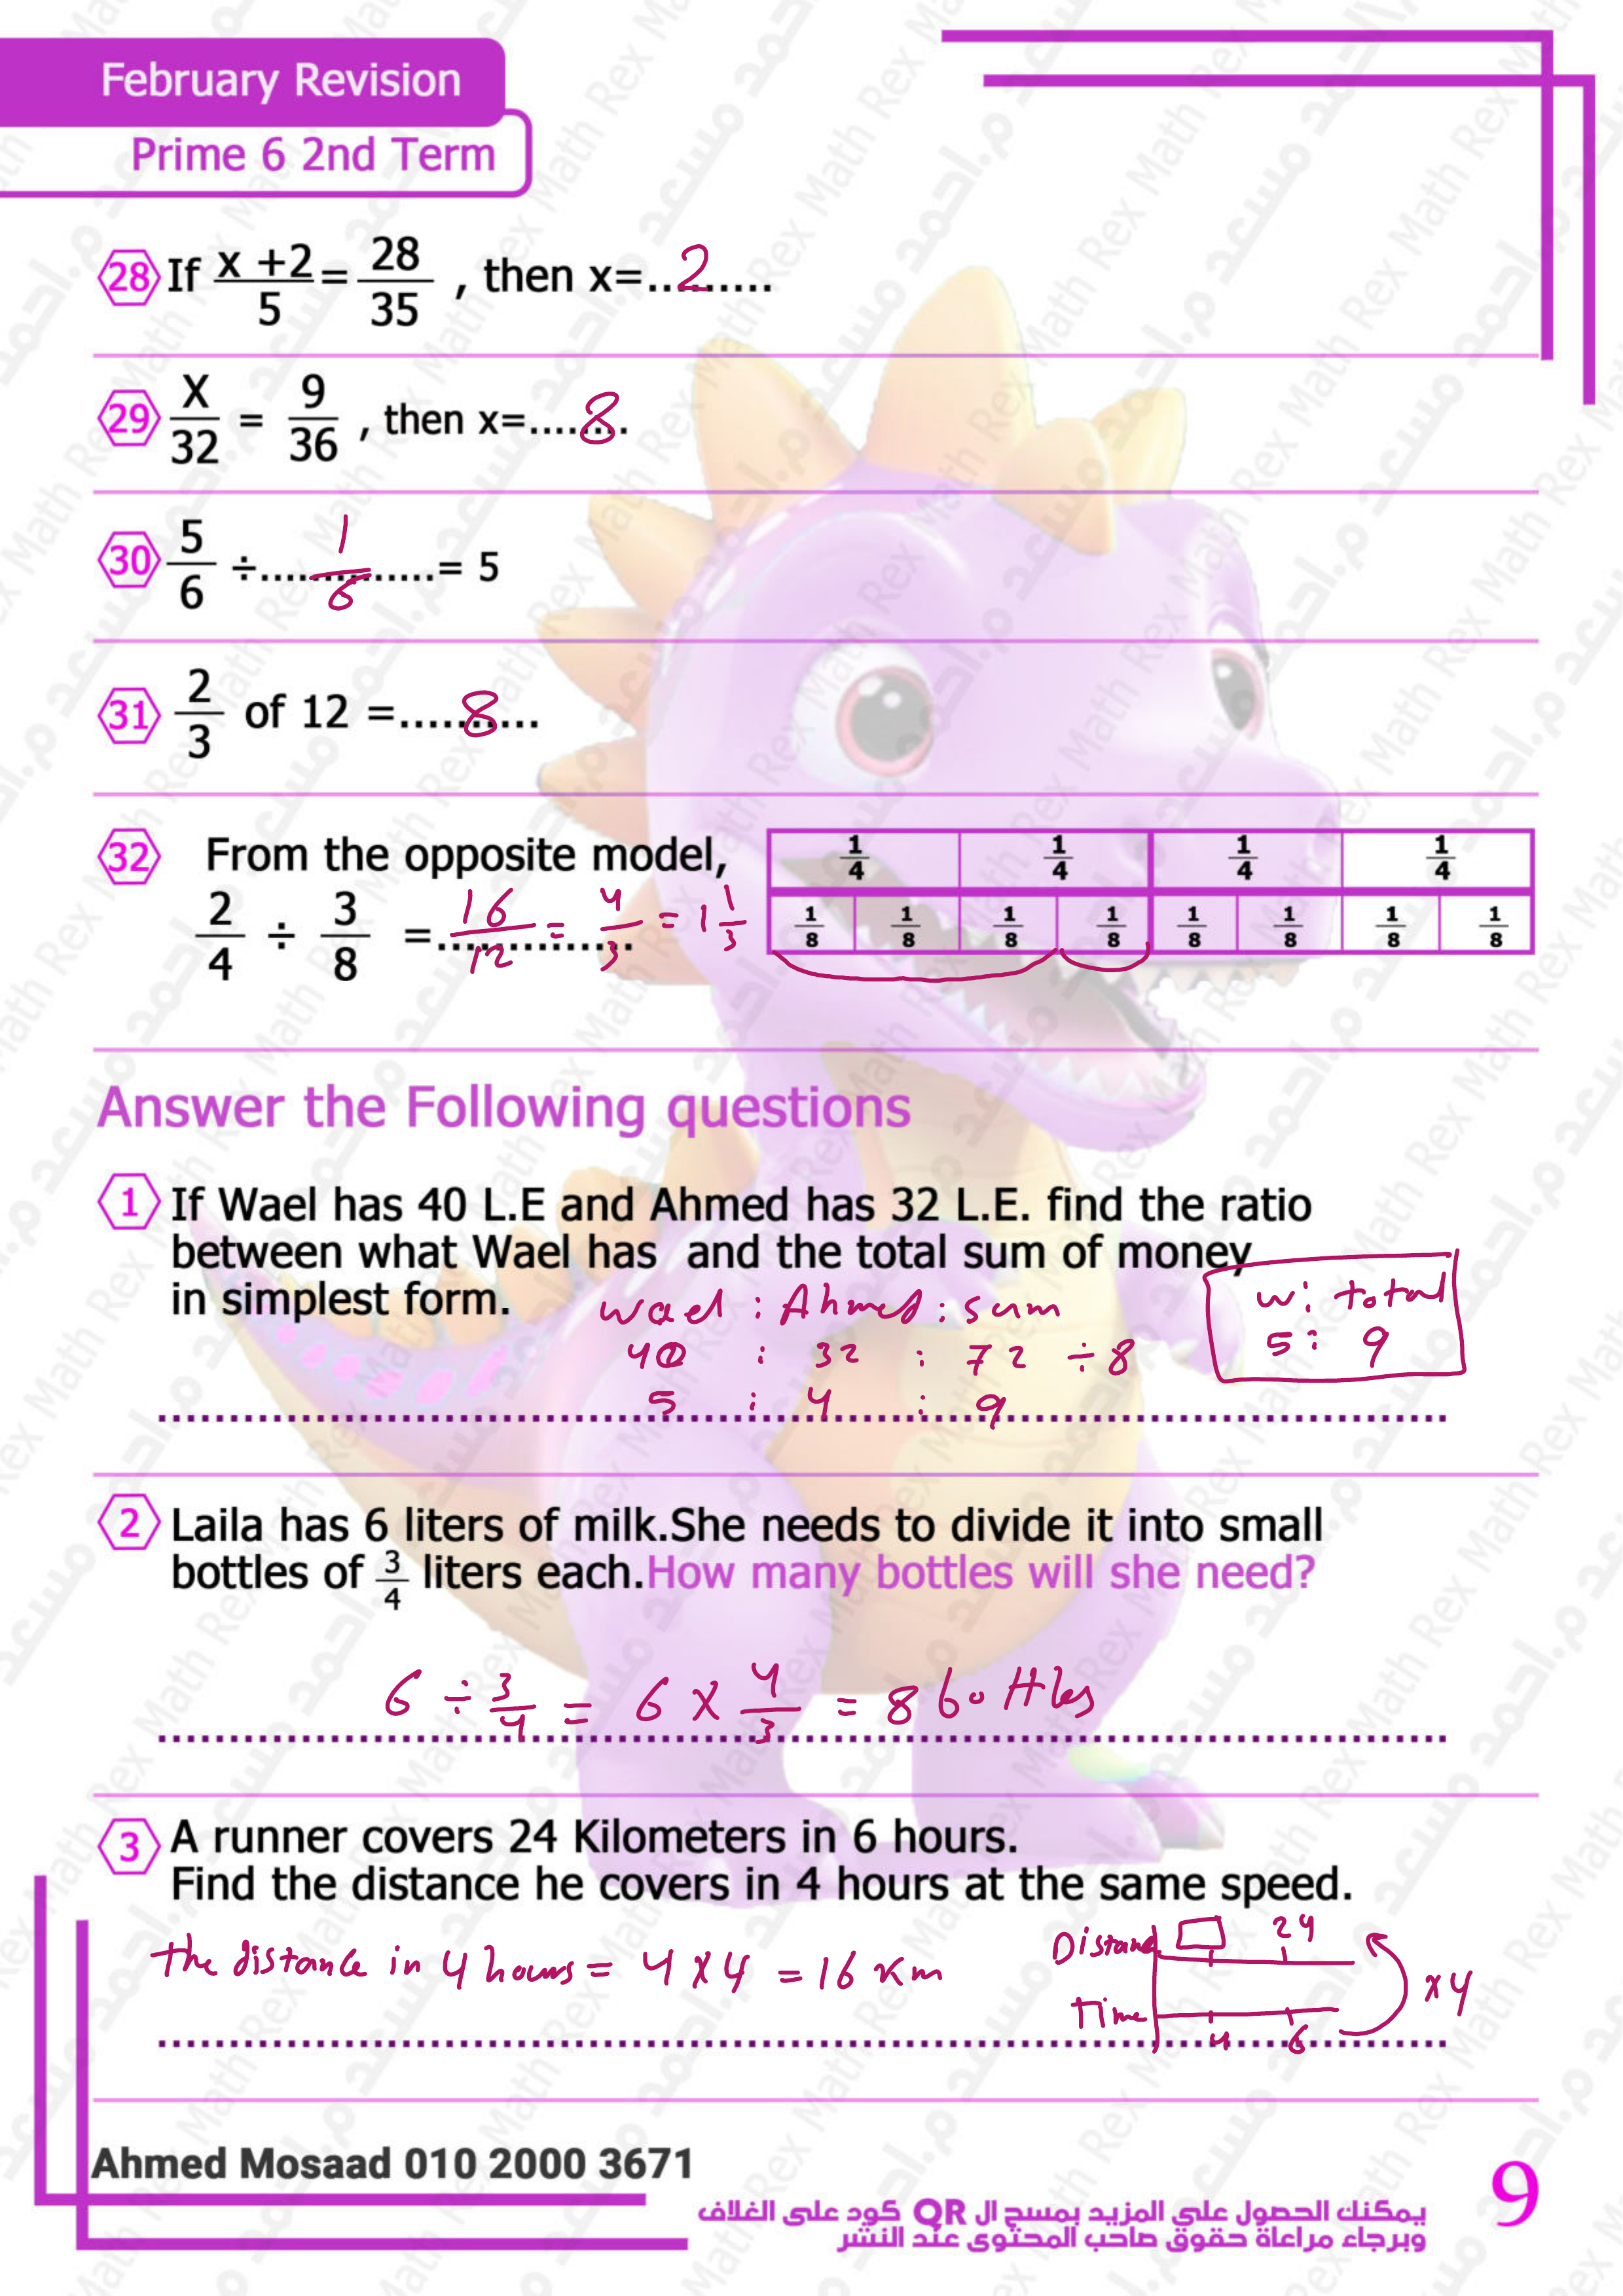 February Revision
Prime 6 2nd Term
28 If x +2/5 = 28/35 , then x=...2......
29 X/32 = 9/36 , then x=....8...
30 5/6 ÷.....1/6.....= 5
31 2/3 of 12 =....8....
32 From the opposite model,
2/4 ÷ 3/8 = 16/12 = 4/3 = 1 1/3
1/4 1/4 1/4 1/4
1/8 1/8 1/8 1/8 1/8 1/8 1/8 1/8
Answer the Following questions
1 If Wael has 40 L.E and Ahmed has 32 L.E. find the ratio
between what Wael has and the total sum of money
in simplest form.
wael : Ahmed : sum
40 : 32 : 72 ÷8
5 : 4 : 9
w: total
5: 9
2 Laila has 6 liters of milk.She needs to divide it into small
bottles of 3/4 liters each.How many bottles will she need?
6 ÷ 3/4 = 6 x 4/3 = 8 bottles
3 A runner covers 24 Kilometers in 6 hours.
Find the distance he covers in 4 hours at the same speed.
the distance in 4 hours = 4 x 4 = 16 Km
Distance 24
x4
Time 4 6
Ahmed Mosaad 010 2000 3671
يمكنك الحصول على المزيد بمسح ال QR كود على الغلاف
وبرجاء مراعاة حقوق صاحب المحتوى عند النشر
9
Math Rex
م.احمد مسعد